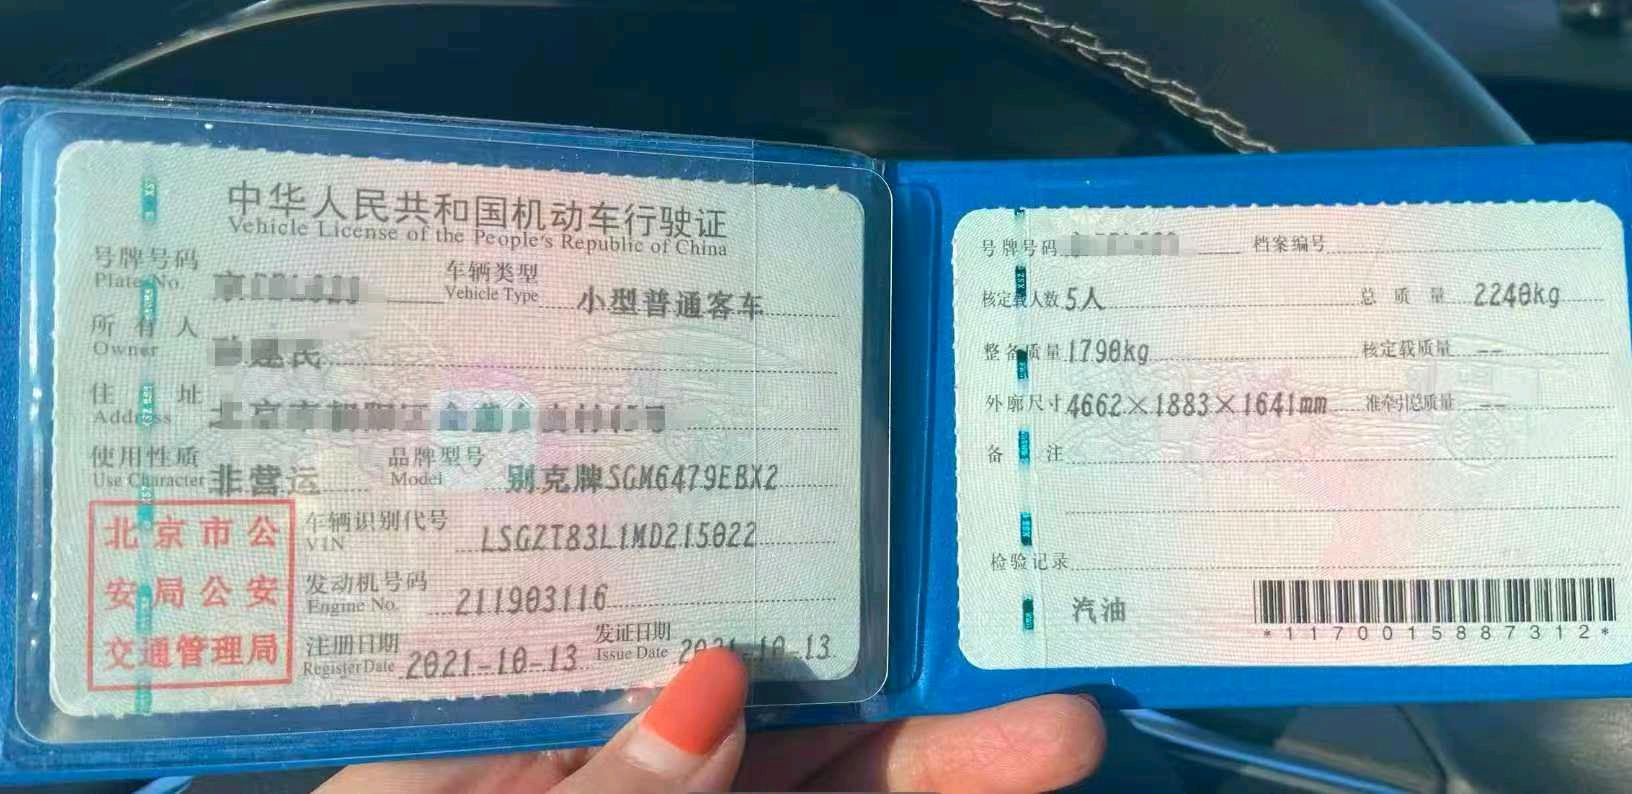 中华人民共和国机动车行驶证
Vehicle License of the People's Republic of China
号牌号码
Plate No.
车辆类型
Vehicle Type
小型普通客车
所有人
Owner
住址
Address
使用性质
Use Character
非营运
品牌型号
Model
别克牌SGM6479EBX2
北京市公
安局公安
交通管理局
车辆识别代号
VIN
LSGZT83L1MD215022
发动机号码
Engine No.
211903116
注册日期
Register Date
2021-10-13
发证日期
Issue Date
2021-10-13
号牌号码
档案编号
核定载人数 5人
总质量 2240kg
整备质量 1790kg
核定载质量 --
外廓尺寸 4662×1883×1641mm
准牵引总质量 --
备注
检验记录
汽油
*1170015887312*